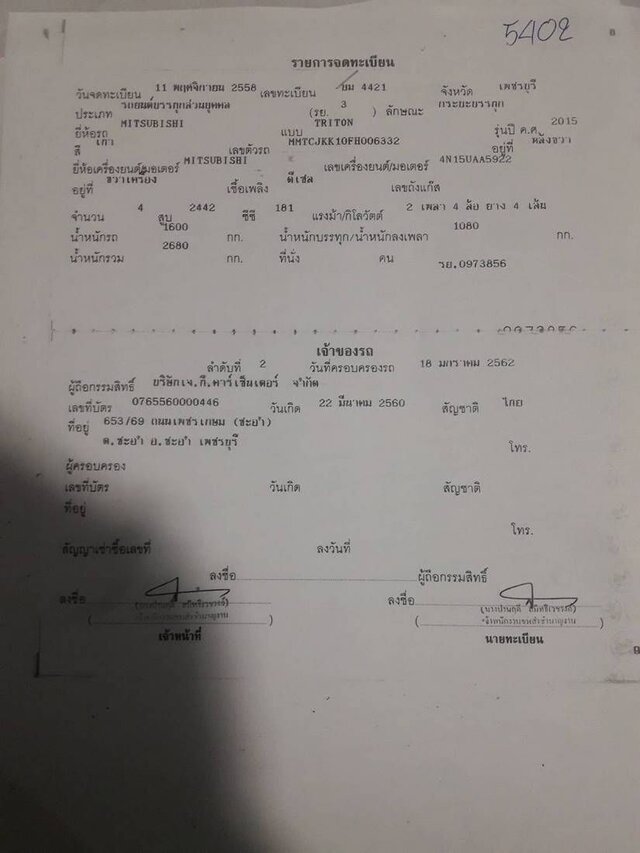 5402
รายการจดทะเบียน
วันจดทะเบียน 11 พฤศจิกายน 2558 เลขทะเบียน ยม 4421 จังหวัด เพชรบุรี
ประเภท รถยนต์บรรทุกส่วนบุคคล (รย. 3 ) ลักษณะ กระบะบรรทุก
ยี่ห้อรถ MITSUBISHI แบบ TRITON รุ่นปี ค.ศ. 2015
สี เทา เลขตัวรถ MMTCJKK10FH006332 อยู่ที่ หลังขวา
ยี่ห้อเครื่องยนต์/มอเตอร์ MITSUBISHI เลขเครื่องยนต์/มอเตอร์ 4N15UAA5922
อยู่ที่ ขวาเครื่อง เชื้อเพลิง ดีเซล เลขถังแก๊ส
จำนวน 4 สูบ 2442 ซีซี 181 แรงม้า/กิโลวัตต์ 2 เพลา 4 ล้อ ยาง 4 เส้น
น้ำหนักรถ 1600 กก. น้ำหนักบรรทุก/น้ำหนักลงเพลา 1080 กก.
น้ำหนักรวม 2680 กก. ที่นั่ง คน รย.0973856
เจ้าของรถ
ลำดับที่ 2 วันที่ครอบครองรถ 18 มกราคม 2562
ผู้ถือกรรมสิทธิ์ บริษัทเจ.ที.คาร์เซ็นเตอร์ จำกัด
เลขที่บัตร 0765560000446 วันเกิด 22 มีนาคม 2560 สัญชาติ ไทย
ที่อยู่ 653/69 ถนนเพชรเกษม (ชะอำ)
ต.ชะอำ อ.ชะอำ เพชรบุรี
โทร.
ผู้ครอบครอง
เลขที่บัตร วันเกิด สัญชาติ
ที่อยู่
โทร.
สัญญาเช่าซื้อเลขที่ ลงวันที่
ลงชื่อ ผู้ถือกรรมสิทธิ์
ลงชื่อ ลงชื่อ
เจ้าหน้าที่ นายทะเบียน